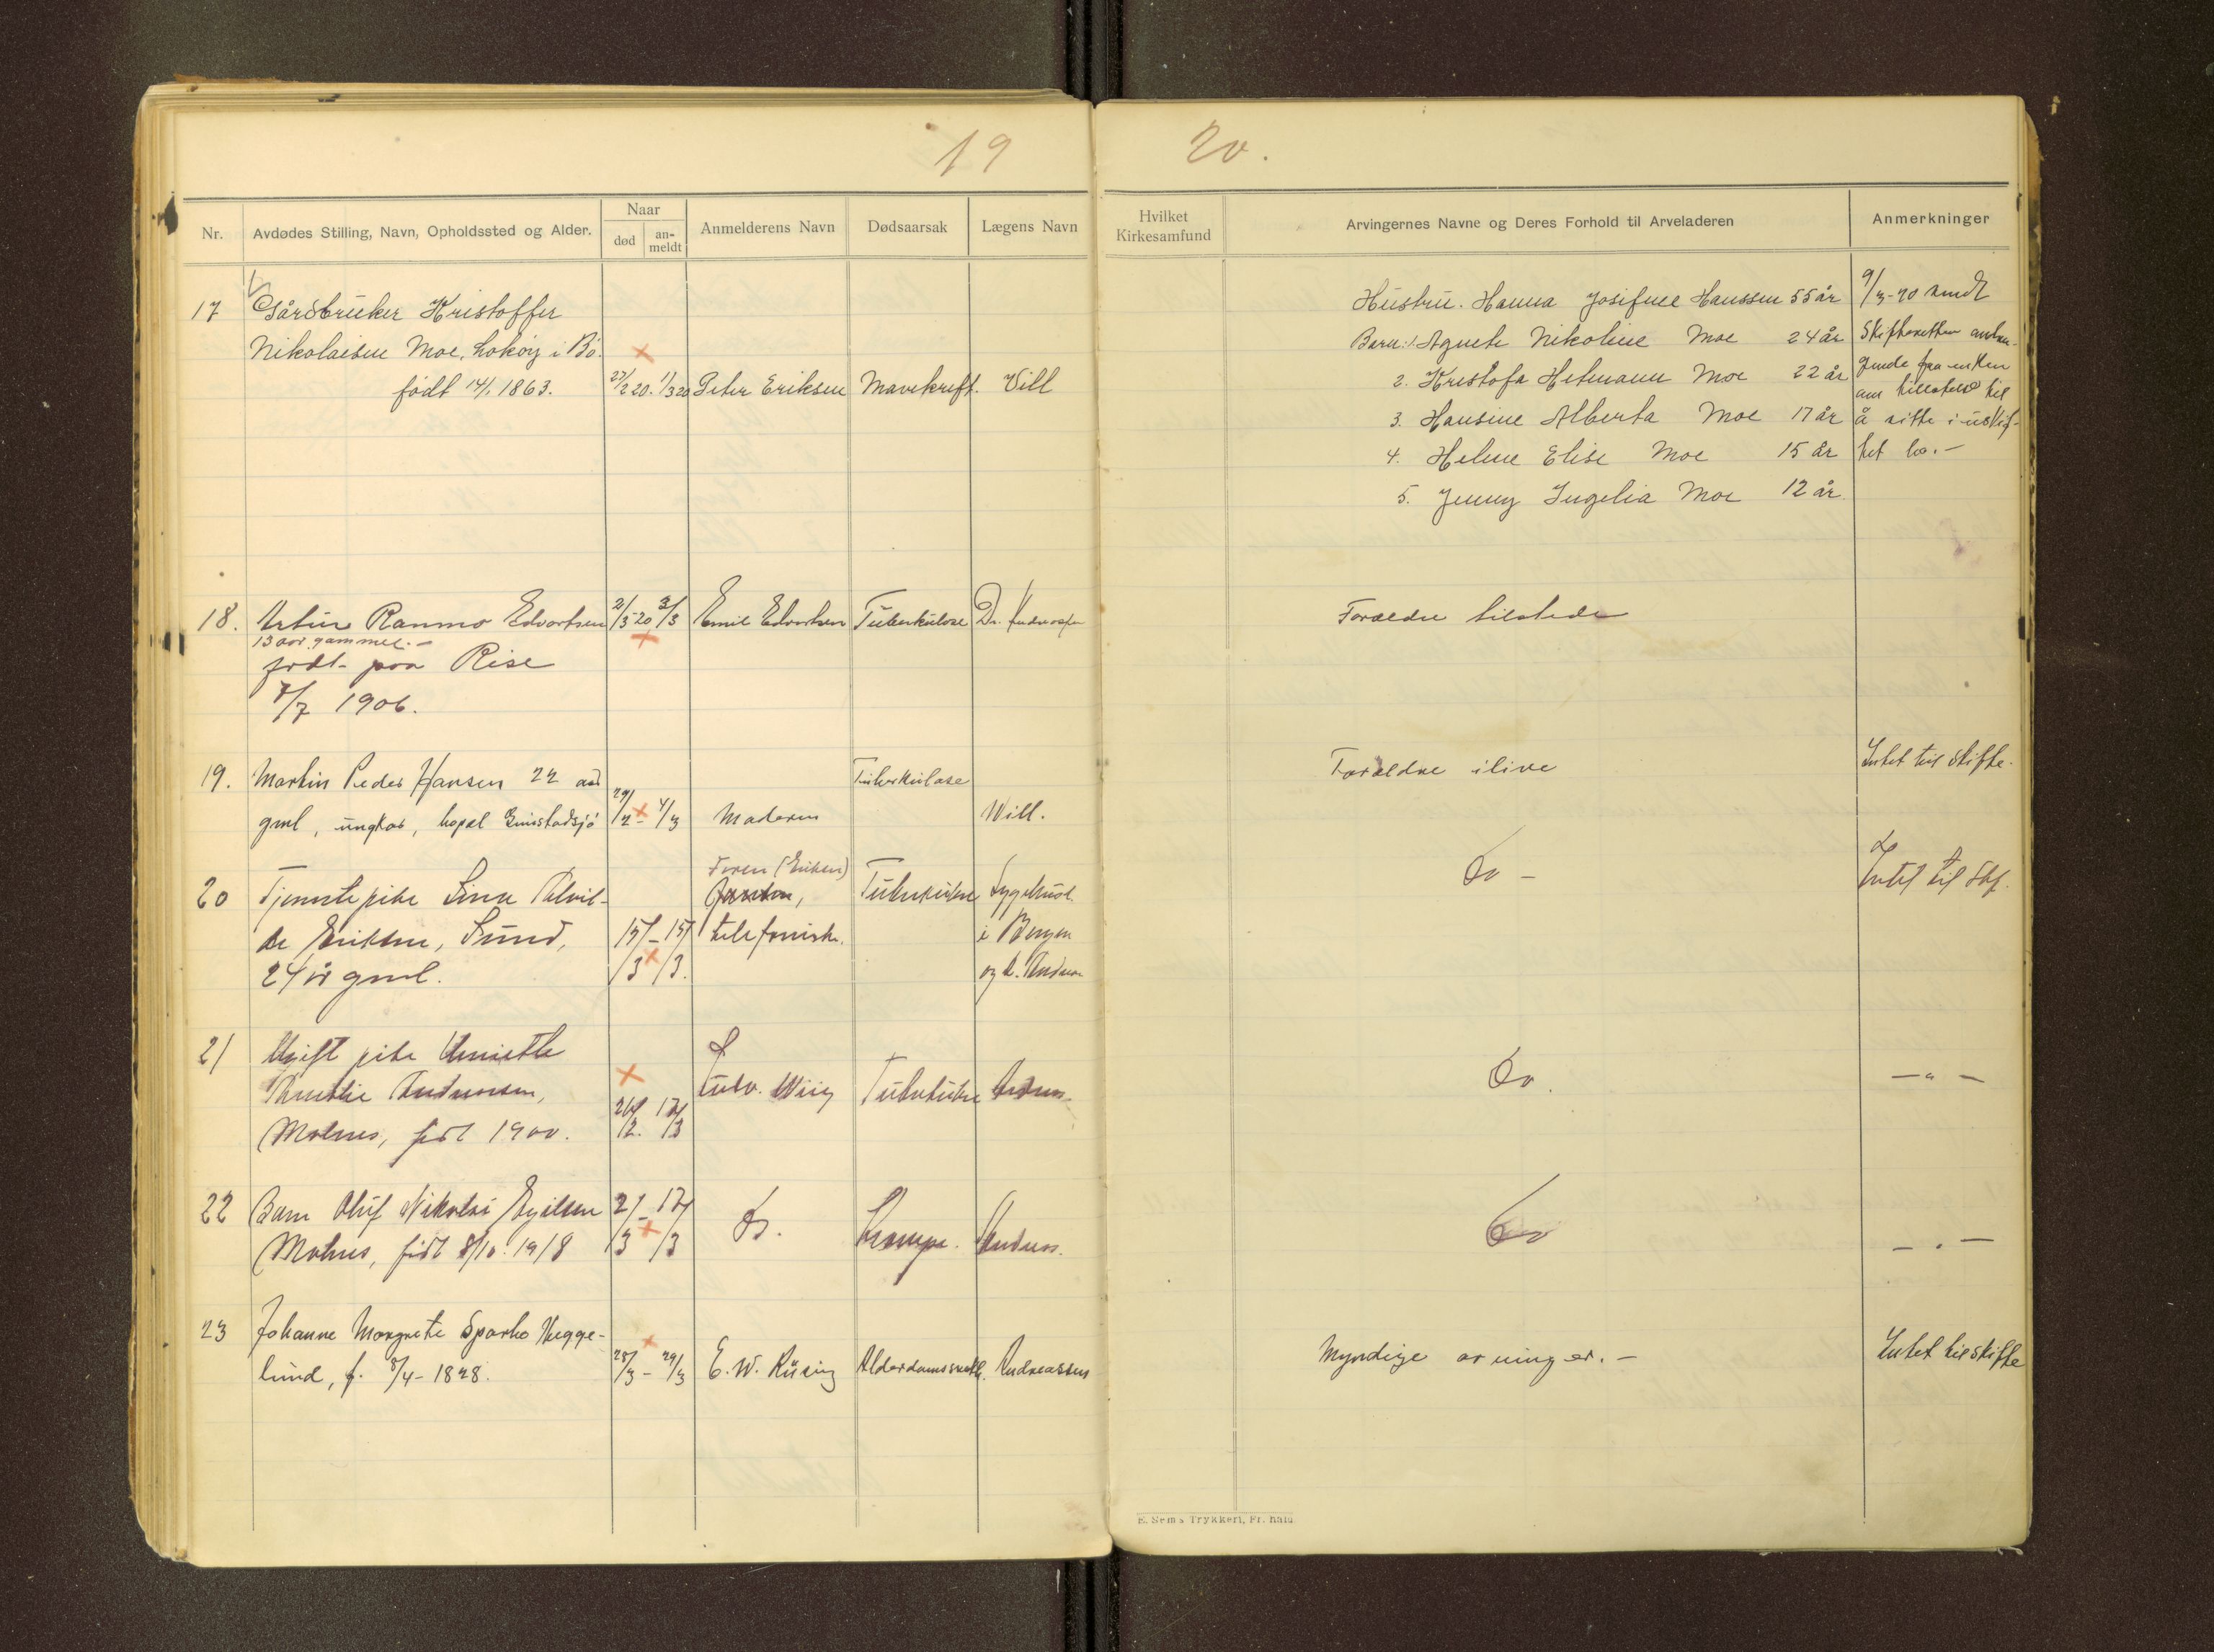 19
Nr.
Avdødes Stilling, Navn, Opholdssted og Alder.
Naar
død
an-
meldt
Anmelderens Navn
Dødsaarsak
Lægens Navn
17 Gårdbruker Kristoffer
Nikolaisen Moe, i Bö.
født 14/1. 1863. 27/2 20. 1/3 20 Peter Eriksen Mavekreft. Vill
18. Artur Ranmo Edvartsen 2/3-20 3/3 Emil Edvartsen Tuberkulose Dr.
13 aar gammel.-
født paa Rise
7/7 1906.
19. Martin Peder Hansen 22 aar Tuberkulose
gml, ungkar, 29/2 - 4/3 Moderen Will.
Faren (Eriksen)
20 Tjenestepike Sina
Eriksen, Sund, 15/3 - 15/3 telefonisk. i Bergen
24 år gml. og
21 Ugift pike
Molnes, født 1900. 26/2. 17/3 Wiig
22 Barn Oluf Nikolai 2/3 - 17/3 Do. Krampe.
Molnes, født 8/10. 1918
23 Johanne Margrete Sparbo Hegge-
lund, f. 8/4 - 1828. 28/3 - 29/3 E. W. Rüsing Alderdomssvakh. Andreassen
20.
Hvilket
Kirkesamfund
Arvingernes Navne og Deres Forhold til Arveladeren
Anmerkninger
Hustru. Hanna Josifine Hanssen 55 år
Barn: 1. Agnete Nikoline Moe 24 år
2. Kristofa Hetmann Moe 22 år
3. Hansine Alberta Moe 17 år
4. Helene Elise Moe 15 år
5. Jenny Ingelia Moe 12 år
9/3-20 sendt
Skifteretten
fra enken
om tillatelse til
å sitte i uskif-
tet bo.-
Forældre tilstede
Forældre ilive
Intet til skifte.
Do -
Intet til Skf.
Do.
— " —
Do
— " —
Myndige arvinger. -
Intet til skifte
E. Sems Trykkeri, Fr.hald